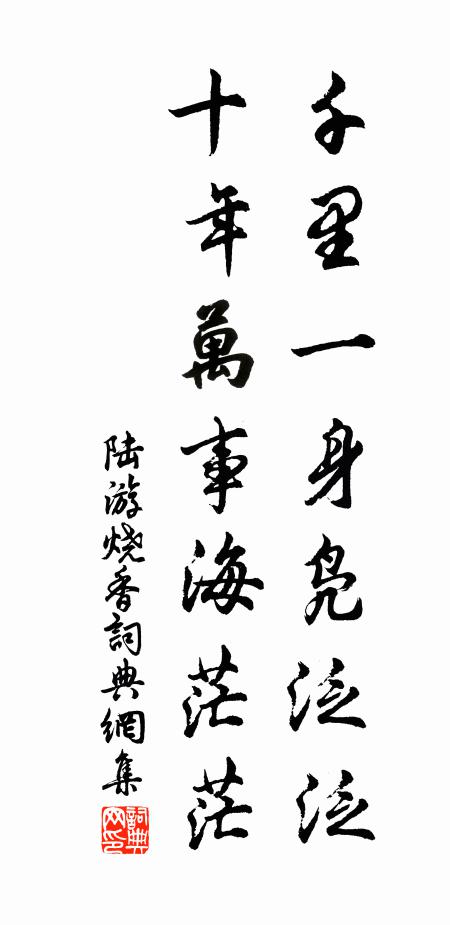 千里一身凫泛泛
十年萬事海茫茫
陆游烧香詞典網集
詞典网印